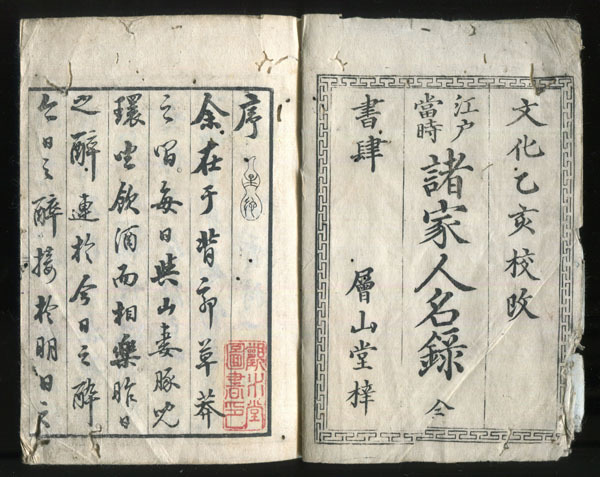 文化乙亥校改
江戸
當時
諸家人名錄 全
書肆 層山堂梓
序
余在于背郭草莽
之間每日與山妻豚児
環坐飲酒而相樂昨日
之醉連於今日之醉
今日之醉接於明日之
水堂
圖書印